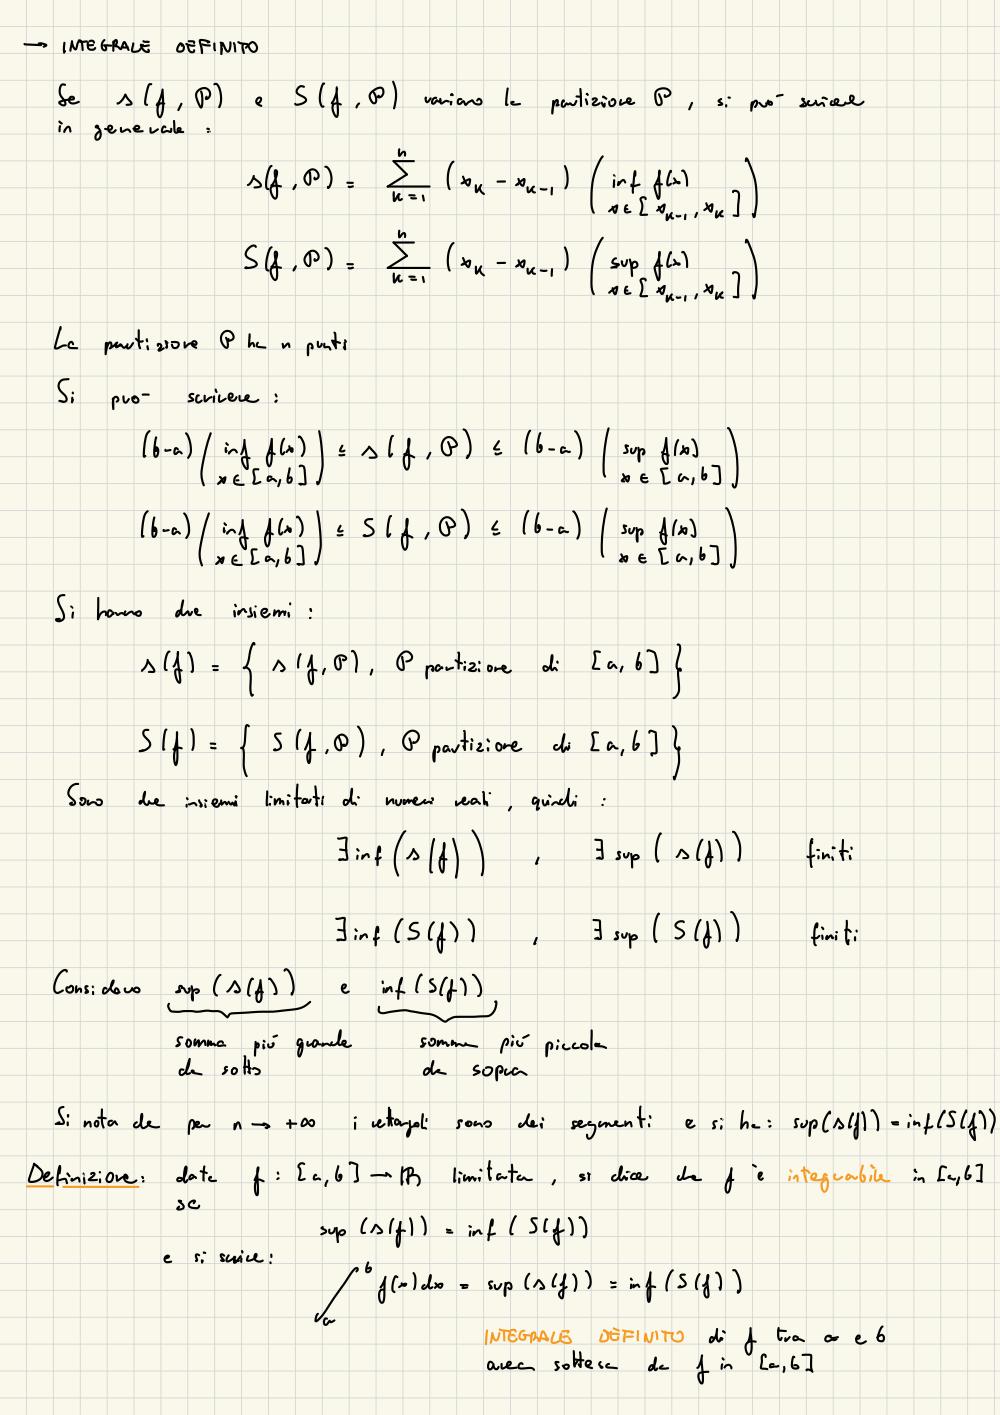 → INTEGRALE DEFINITO
Se s(f, P) e S(f, P) variano la partizione P, si può scrivere
in generale :
s(f, P) = ∑_{k=1}^{n} (x_k - x_{k-1}) ( inf f(x) x ∈ [x_{k-1}, x_k] )
S(f, P) = ∑_{k=1}^{n} (x_k - x_{k-1}) ( sup f(x) x ∈ [x_{k-1}, x_k] )
La partizione P ha n punti
Si può scrivere :
(b-a) ( inf f(x) x ∈ [a,b] ) ≤ s(f, P) ≤ (b-a) ( sup f(x) x ∈ [a,b] )
(b-a) ( inf f(x) x ∈ [a,b] ) ≤ S(f, P) ≤ (b-a) ( sup f(x) x ∈ [a,b] )
Si hanno due insiemi :
s(f) = { s(f,P), P partizione di [a,b] }
S(f) = { S(f,P), P partizione di [a,b] }
Sono due insiemi limitati di numeri reali, quindi :
∃ inf (s(f)) , ∃ sup (s(f)) finiti
∃ inf (S(f)) , ∃ sup (S(f)) finiti
Considero sup (s(f)) e inf (S(f))
somma più grande somma più piccola
da sotto da sopra
Si nota che per n → +∞ i rettangoli sono dei segmenti e si ha : sup(s(f)) = inf(S(f))
Definizione: data f : [a,b] → ℝ limitata, si dice che f è integrabile in [a,b]
se
sup (s(f)) = inf (S(f))
e si scrive:
∫_a^b f(x)dx = sup (s(f)) = inf (S(f))
INTEGRALE DEFINITO di f tra a e b
area sottesa da f in [a,b]